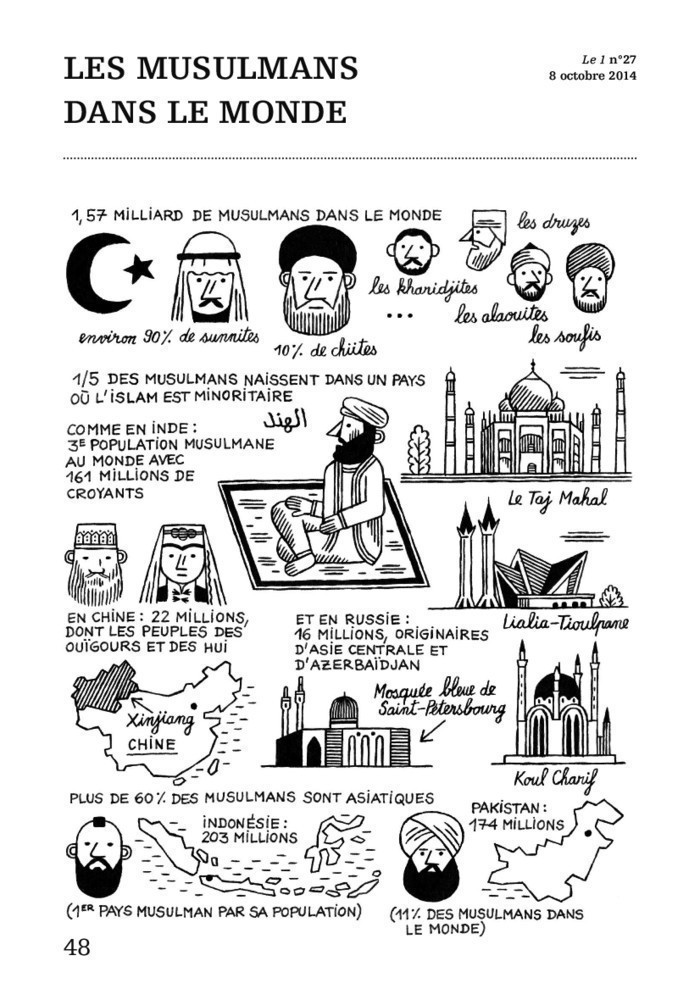 LES MUSULMANS
DANS LE MONDE
Le 1 n°27
8 octobre 2014
1,57 MILLIARD DE MUSULMANS DANS LE MONDE
les druzes
les kharidjites
...
les alaouites
les soufis
environ 90% de sunnites
10% de chiites
1/5 DES MUSULMANS NAISSENT DANS UN PAYS
OÙ L'ISLAM EST MINORITAIRE
الهند
COMME EN INDE :
3E POPULATION MUSULMANE
AU MONDE AVEC
161 MILLIONS DE
CROYANTS
Le Taj Mahal
EN CHINE : 22 MILLIONS,
DONT LES PEUPLES DES
OUÏGOURS ET DES HUI
ET EN RUSSIE :
16 MILLIONS, ORIGINAIRES
D'ASIE CENTRALE ET
D'AZERBAÏDJAN
Lialia-Tioulpane
Xinjiang
CHINE
Mosquée bleue de
Saint-Pétersbourg
Koul Charif
PLUS DE 60% DES MUSULMANS SONT ASIATIQUES
INDONÉSIE :
203 MILLIONS
(1ER PAYS MUSULMAN PAR SA POPULATION)
PAKISTAN :
174 MILLIONS
(11% DES MUSULMANS DANS
LE MONDE)
48